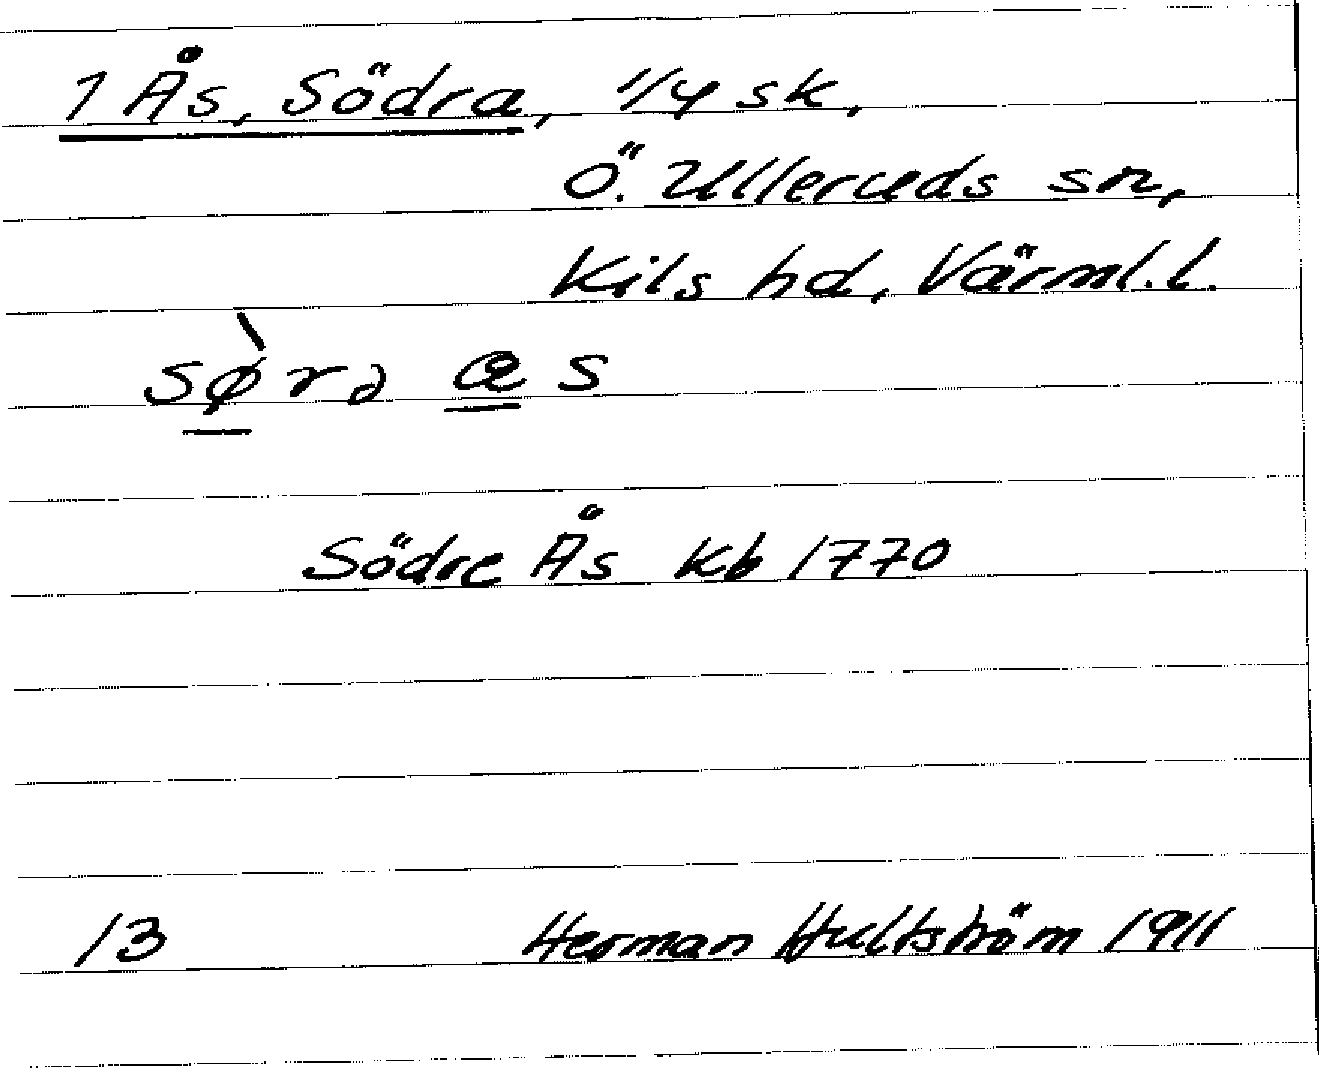 1 Ås, Södra, 1/4 sk,
Ö. Ulleruds sn,
Kils hd, Värml. l.
sø̀rə æ s
Södre Ås Kb 1770
13 Herman Hultström 1911